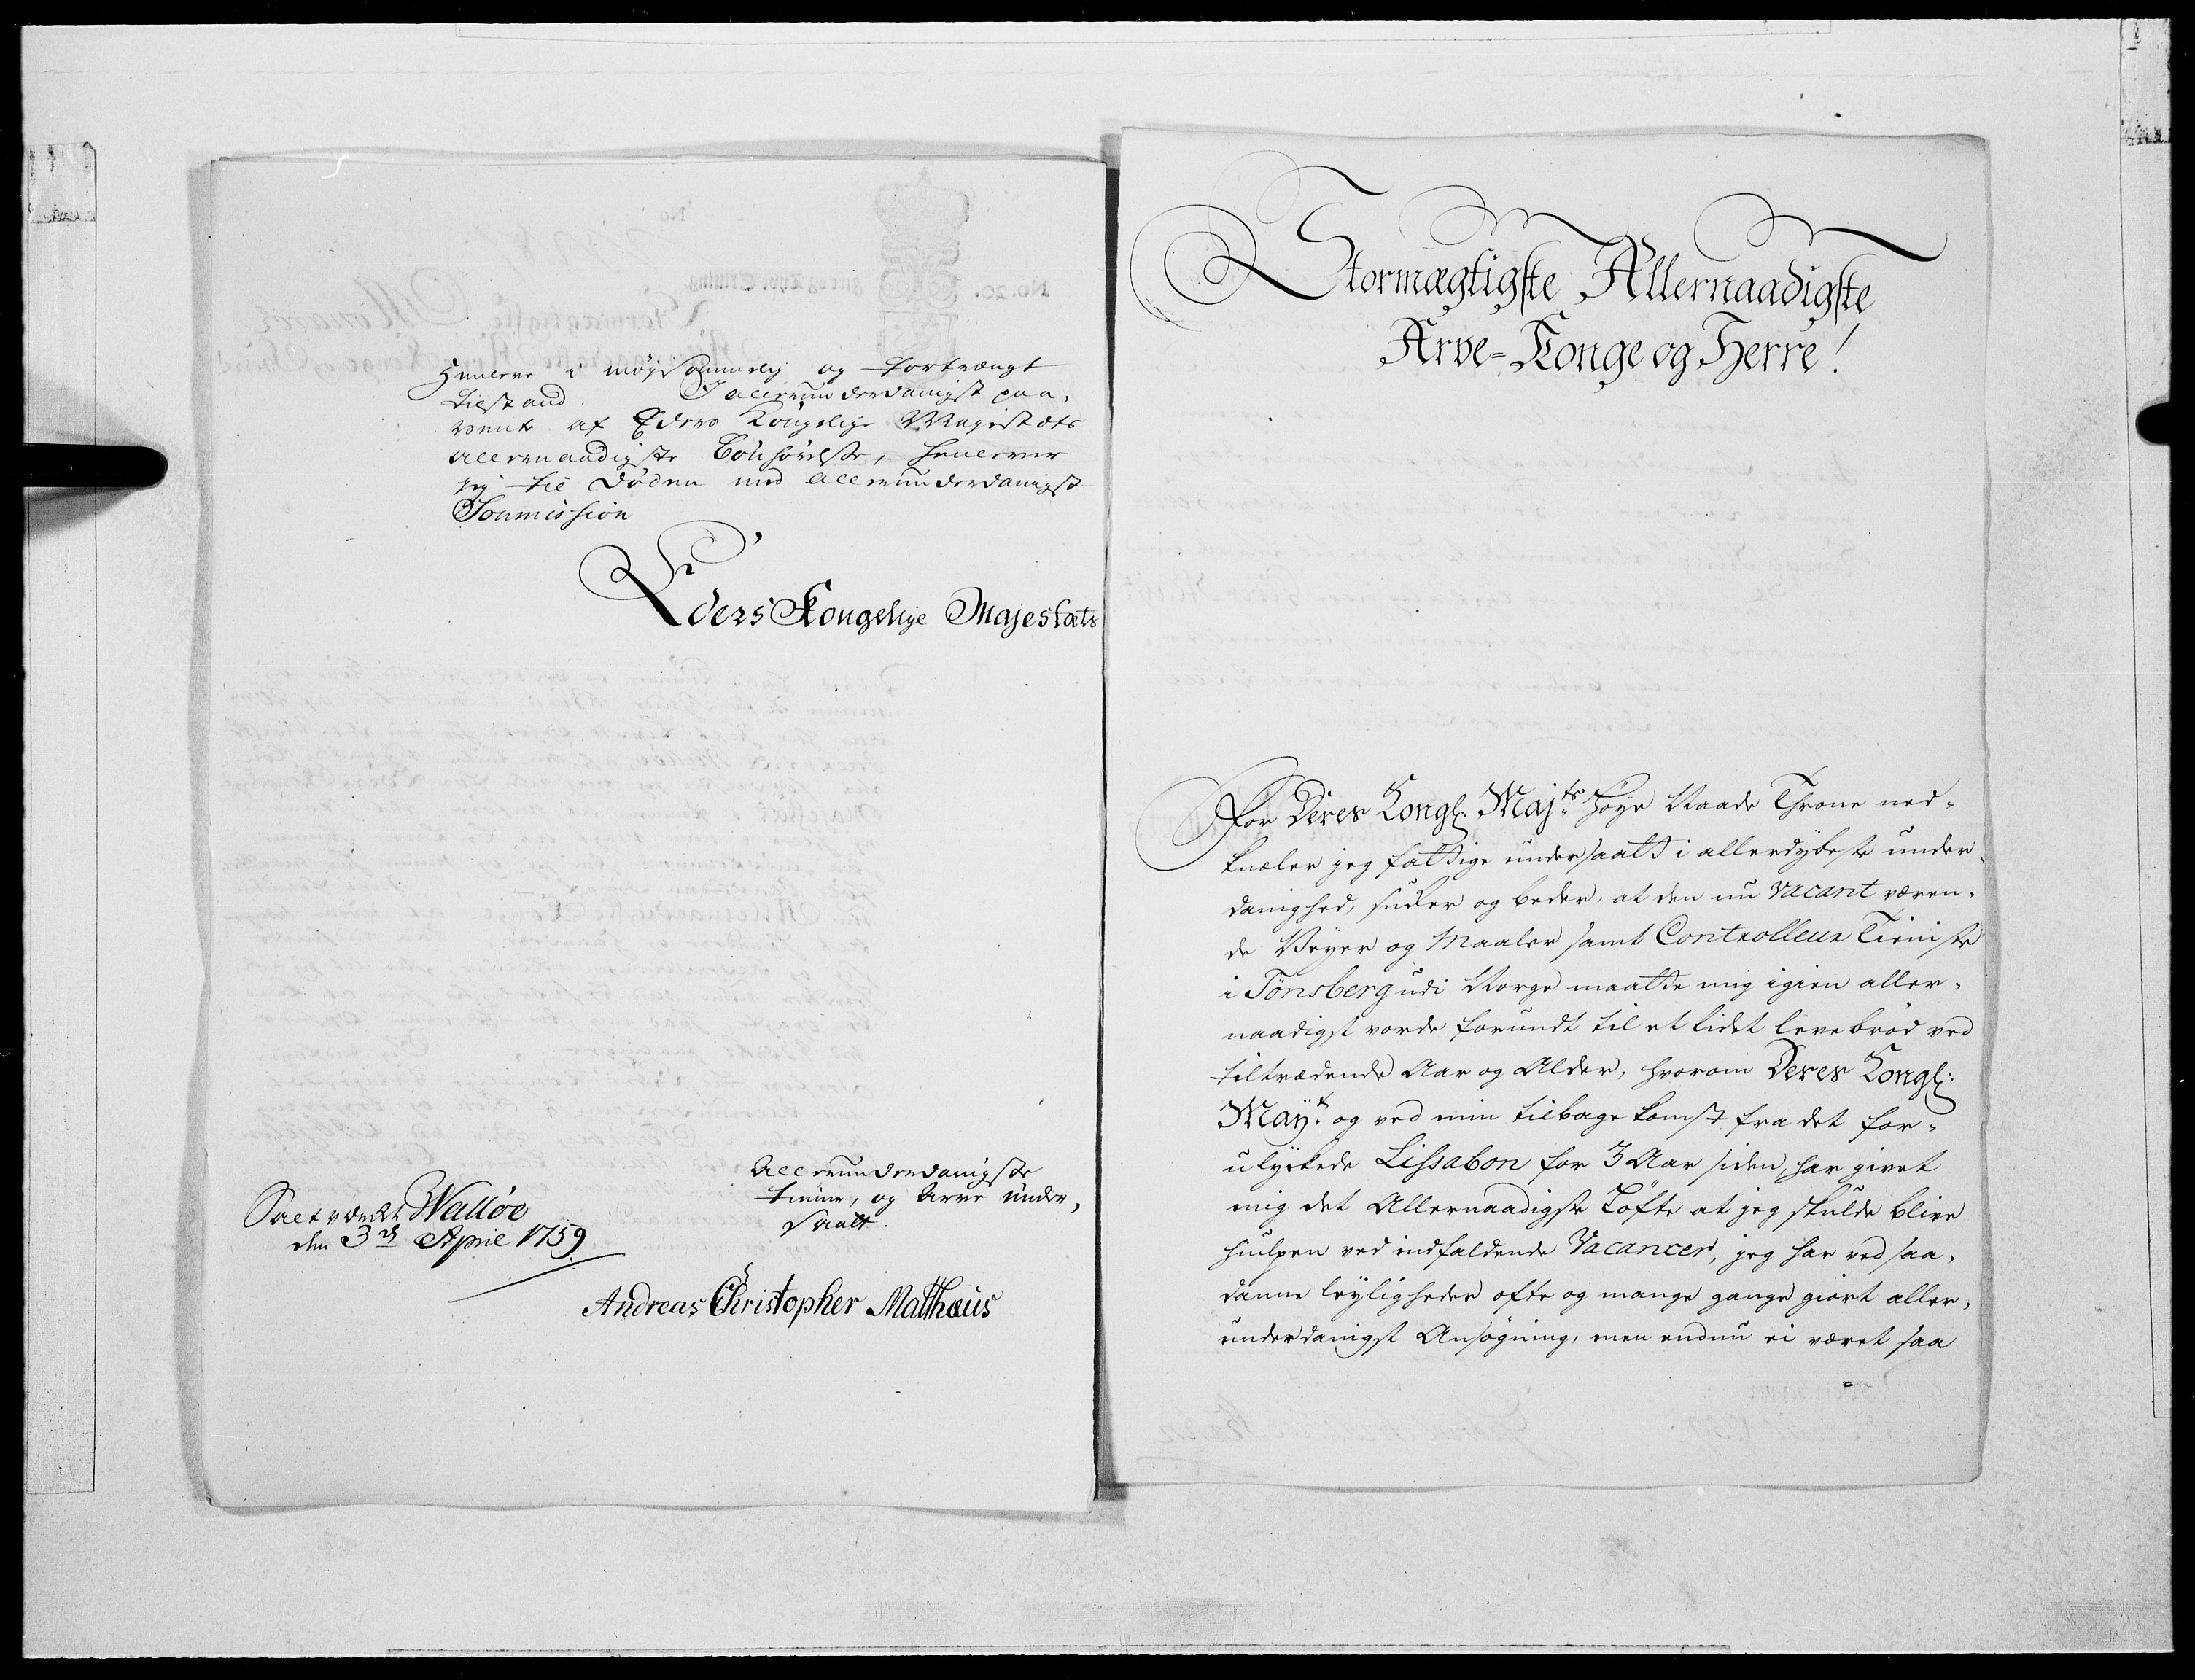 henleve i møysommelig og fortrængt
tilstand. I allerunderdanigst paa,
vente af Eders Kongelige Majestæts
allernaadigste Bønhørelse, henlever
jeg til Døden med allerunderdanigst
Soumission
Eders Kongelige Majestæts
Saltværket Walløe
den 3d April 1759
Allerunderdanigste
tiener, og Arve under,
saatt.
Andreas Christopher Matthæus
Stormægtigste Allernaadigste
Arve-Konge og Herre!
For Deres Kongl: Majts Høye Naade Throne ned-
knæler jeg fattige undersaatt i allerdybeste under-
danighed, sucker og beder, at den nu vacant væren-
de Veyer og Maaler samt Controlleur Tieniste
i Tønsberg udi Norge maatte mig igien aller-
naadigst vorde forundt til et lidet levebrød ved
tiltrædende Aar og Alder, hvorom Deres Kongl:
Mayt. og ved min tilbage komst fra det for-
ulyckede Lissabon for 3 Aar siden, har givet
mig det Allernaadigste Løfte at jeg skulde blive
hiulpen ved indfaldende Vacancer, jeg har ved saa-
danne leyligheder ofte og mange gange giort aller-
underdanigst Ansøgning, men endnu ei været saa